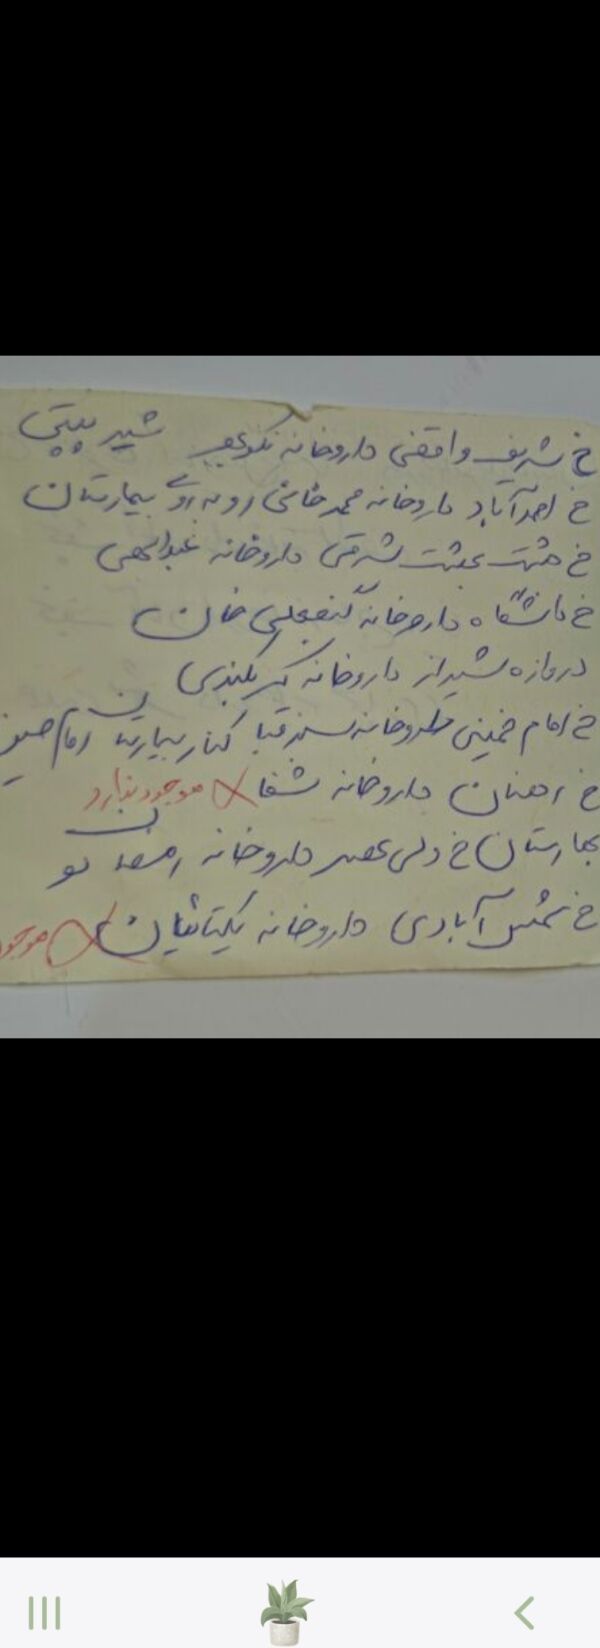 خ شریف واقفی داروخانه نکوعصر شیر پپتی
خ احمدآباد داروخانه محمدخانی روبه‌روی بیمارستان
خ هشت بهشت شرقی داروخانه عبدالهی
خ دانشگاه داروخانه گنجعلی خان
دروازه شیراز داروخانه کمربندی
خ امام خمینی داروخانه کنار بیمارستان امام حسین
خ داروخانه شفا موجود ندارد
بهارستان خ ولی عصر داروخانه نو
خ شمس آبادی داروخانه یکتائیان